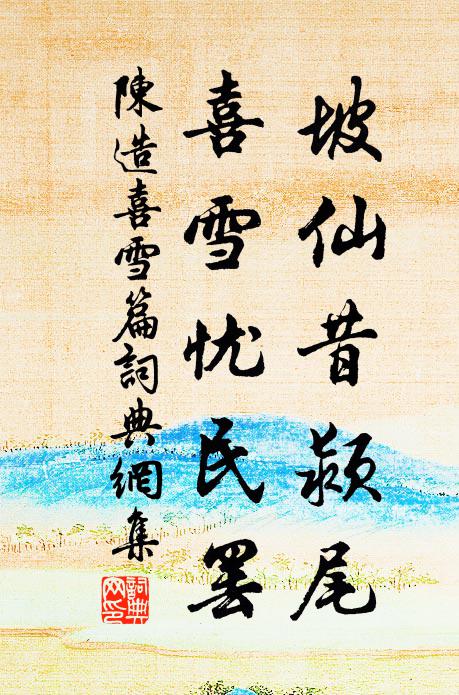 坡仙昔颍尾
喜雪忧民罢
陳造喜雪篇詞典網集